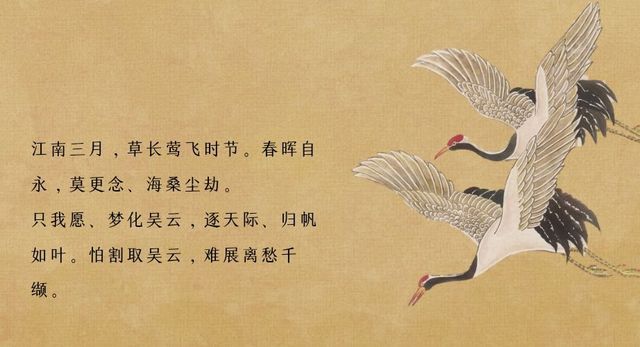 江南三月，草长莺飞时节。春晖自
永，莫更念、海桑尘劫。
只我愿、梦化吴云，逐天际、归帆
如叶。怕割取吴云，难展离愁千
缬。